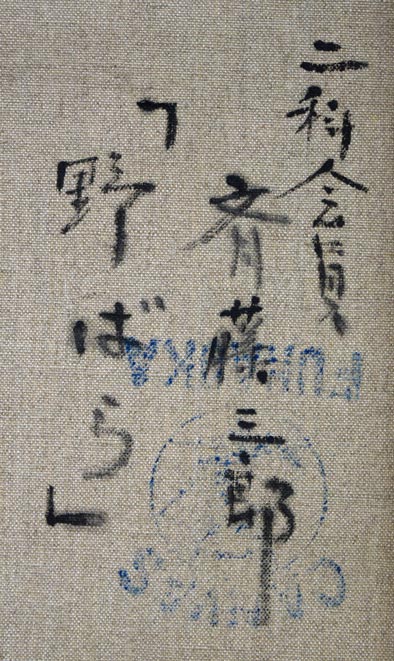 二科会員
斉藤三郎
「野ばら」